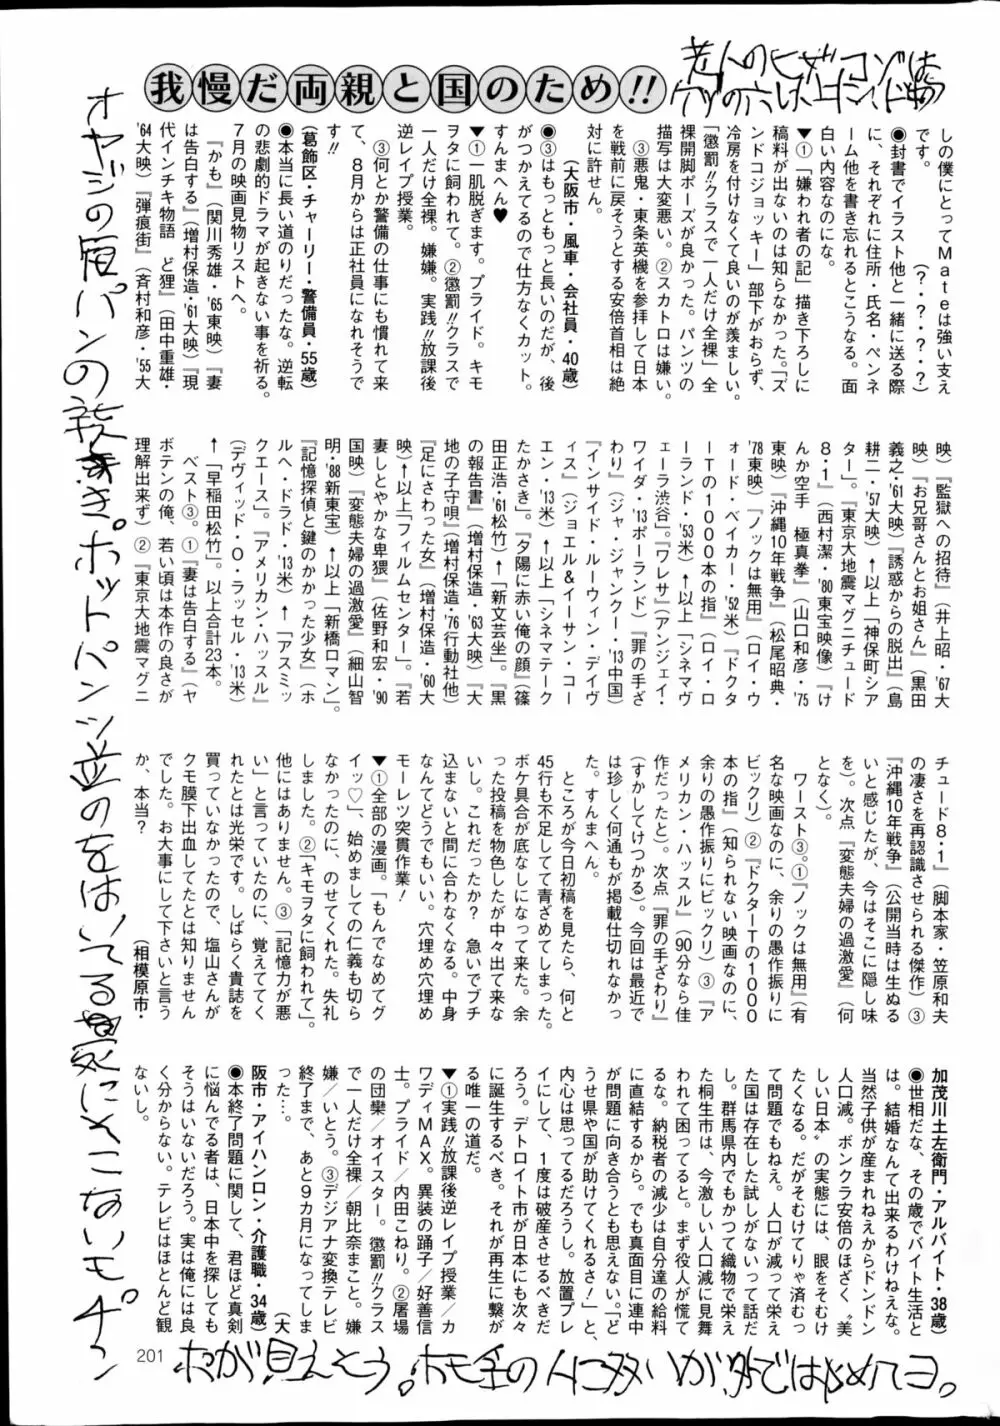 我慢だ両親と国のため!!
しの僕にとってＭａｔｅは強い支え
です。　　　　（？・？・？・？）
●封書でイラスト他と一緒に送る際
に、それぞれに住所・氏名・ペンネ
ーム他を書き忘れるとこうなる。面
白い内容なのにな。
▼①「嫌われ者の記」描き下ろしに
稿料が出ないのは知らなかった。「ズ
ンドコジョッキー」部下がおらず、
冷房を付けなくて良いのが羨ましい。
「懲罰!!クラスで一人だけ全裸」全
裸開脚ポーズが良かった。パンツの
描写は大変悪い。②スカトロは嫌い。
③悪鬼・東条英機を参拝して日本
を戦前に戻そうとする安倍首相は絶
対に許せん。
（大阪市・風車・会社員・40歳）
●③はもっともっと長いのだが、後
がつかえてるので仕方なくカット。
すんまへん♥
▼①一肌脱ぎます。プライド。キモ
ヲタに飼われて。②懲罰!!クラスで
一人だけ全裸。嫌嫌。実践!!放課後
逆レイプ授業。
③何とか警備の仕事にも慣れて来
て、８月からは正社員になれそうで
す!!
（葛飾区・チャーリー・警備員・55歳）
●本当に長い道のりだったな。逆転
の悲劇的ドラマが起きない事を祈る。
７月の映画見物リストへ。
『かも』（関川秀雄・'65東映）『妻
は告白する』（増村保造・'61大映）『現
代インチキ物語　ど狸』（田中重雄・
'64大映）『弾痕街』（斉村和彦・'55大
映）『監獄への招待』（井上昭・'67大
映）『お兄哥さんとお姐さん』（黒田
義之・'61大映）『誘惑からの脱出』（島
耕二・'57大映）↑以上「神保町シア
ター」。『東京大地震マグニチュード
８・１』（西村潔・'80東宝映像）『け
んか空手　極真拳』（山口和彦・'75
東映）『沖縄10年戦争』（松尾昭典・
'78東映）『ノックは無用』（ロイ・ウ
ォード・ベイカー・'52米）『ドクタ
ーＴの１０００本の指』（ロイ・ロ
ーランド・'53米）↑以上「シネマヴ
ェーラ渋谷」。『ワレサ』（アンジェイ・
ワイダ・'13ポーランド）『罪の手ざ
わり』（ジャ・ジャンクー・'13中国）
『インサイド・ルーウィン・デイヴ
ィス』（ジョエル＆イーサン・コー
エン・'13米）↑以上「シネマテーク
たかさき」。『夕陽に赤い俺の顔』（篠
田正浩・'61松竹）↑「新文芸坐」。『黒
の報告書』（増村保造・'63大映）『大
地の子守唄』（増村保造・'76行動社他）
『足にさわった女』（増村保造・'60大
映）↑以上「フィルムセンター」。『若
妻しとやかな卑猥』（佐野和宏・'90
国映）『変態夫婦の過激愛』（細山智
明・'88新東宝）↑以上「新橋ロマン」。
『記憶探偵と鍵のかかった少女』（ホ
ルヘ・ドラド・'13米）↑「アスミッ
クエース」。『アメリカン・ハッスル』
（デヴィッド・Ｏ・ラッセル・'13米）
↑「早稲田松竹」。以上合計23本。
ベスト③。①『妻は告白する』（ヤ
ボテンの俺、若い頃は本作の良さが
理解出来ず）②『東京大地震マグニ
チュード８・１』（脚本家・笠原和夫
の凄さを再認識させられる傑作）③
『沖縄10年戦争』（公開当時は生ぬる
いと感じたが、今はそこに隠し味
を）。次点『変態夫婦の過激愛』（何
となく）。
ワースト③。①『ノックは無用』（有
名な映画なのに、余りの愚作振りに
ビックリ）②『ドクターＴの１０００
本の指』（知られない映画なのに、
余りの愚作振りにビックリ）③『ア
メリカン・ハッスル』（90分なら佳
作だったと）。次点『罪の手ざわり』
（すかしてけつかる）。今回は最近で
は珍しく何通もが掲載仕切れなかっ
た。すんまへん。
ところが今日初稿を見たら、何と
45行も不足してて青ざめてしまった。
ボケ具合が底なしになって来た。余
った投稿を物色したが中々出て来な
いし。これだったか？　急いでブチ
込まないと間に合わなくなる。中身
なんてどうでもいい。穴埋め穴埋め
モーレツ突貫作業！
▼①全部の漫画。「もんでなめてグ
イッ♡」、始めましての仁義も切ら
なかったのに、のせてくれた。失礼
しました。②「キモヲタに飼われて」。
他にはありません。③「記憶力が悪
い」と言っていたのに、覚えててく
れたとは光栄です。しばらく貴誌を
買っていなかったので、塩山さんが
クモ膜下出血してたとは知りません
でした。お大事にして下さいと言う
か、本当？
（相模原市・
加茂川土左衛門・アルバイト・38歳）
●世相だな、その歳でバイト生活と
は。結婚なんて出来るわけねえな。
当然子供が産まれねえからドンドン
人口減。ボンクラ安倍のほざく〝美
しい日本〟の実態には、眼をそむけ
たくなる。だがそむけてりゃ済むっ
て問題でもねえ。人口が減って栄え
た国は存在した試しがないって話だ
し。群馬県内でもかつて織物で栄え
た桐生市は、今激しい人口減に見舞
われて困ってると。まず役人が慌て
るな。納税者の減少は自分達の給料
に直結するから。でも真面目に連中
が問題に向き合うとも思えない。「ど
うせ県や国が助けてくれるさ！」と、
内心は思ってるだろうし。放置プレ
イにして、１度は破産させるべきだ
ろう。デトロイト市が日本にも次々
に誕生するべき。それが再生に繋が
る唯一の道だ。
▼①実践!!放課後逆レイプ授業／カ
ワディＭＡＸ。異装の踊子／好善信
士。プライド／内田こねり。②屠場
の団欒／オイスター。懲罰!!クラス
で一人だけ全裸／朝比奈まこと。嫌
嫌／いとう。③デジアナ変換テレビ
終了まで、あと９カ月になってしま
った…。
（大
阪市・アイハンロン・介護職・34歳）
●本終了問題に関して、君ほど真剣
に悩んでる者は、日本中を探しても
そうはいないだろう。実は俺には良
く分からない。テレビはほとんど観
ないし。
201